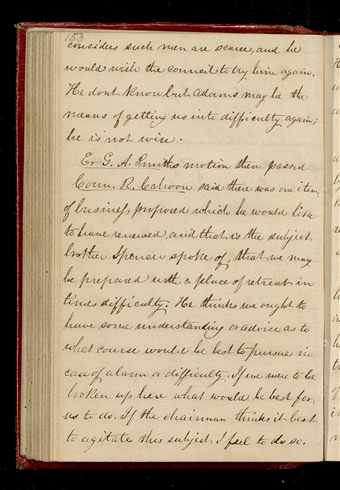 153
considers such men are scarce, and he
would wish the council to try him again.
He dont know but Adams may be the
means of getting us into difficulty again;
he is not wise.
Er G. A. Smiths motion then passed
Coun. R. Cahoon said there was one item
of business proposed which he would like
to have renewed, and that is the subject
brother Spencer spoke of, that we may
be prepared with a place of retreat in
times difficulty. He thinks we ought to
have some understanding or advice as to
what course would be best to pursue in
case of alarm or difficulty. If we were to be
broken up here what would be best for
us to do. If the chairman thinks it best
to agitate this subject, I feel to do so.